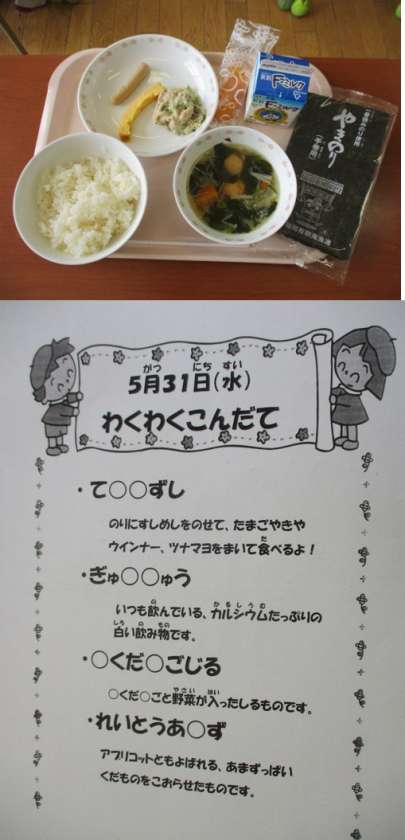 Fミルク
やきのり
5月31日(水)
がつ にち すい
わくわくこんだて
・て○○ずし
のりにすしめしをのせて、たまごやきや
ウインナー、ツナマヨをまいて食べるよ!
た
・ぎゅ○○ゅう
いつも飲んでいる、カルシウムたっぷりの
の かるしうむ
白い飲み物です。
しろ の もの
・○くだ○ごじる
○くだ○ごと野菜が入ったしるものです。
やさい はい
・れいとうあ○ず
アプリコットともよばれる、あまずっぱい
くだものをこおらせたものです。